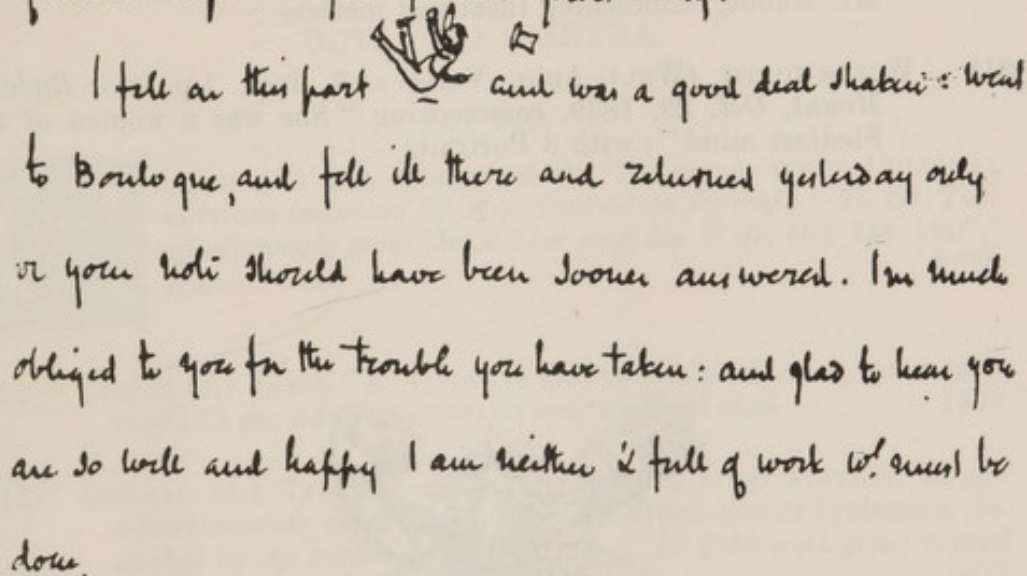 I fell on this part and was a good deal shaken : went
to Boulogne, and fell ill there and returned yesterday only
or your note should have been sooner answered. I'm much
obliged to you for the trouble you have taken : and glad to hear you
are so well and happy I am neither & full of work wh. must be
done.